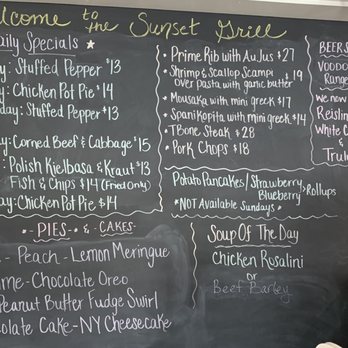 elcome to the Sunset Grill
aily Specials
y: Stuffed Pepper $13
y: Chicken Pot Pie $14
day: Stuffed Pepper $13
day: Corned Beef & Cabbage $15
: Polish Kielbasa & Kraut $13
Fish & Chips $14 (Fried Only)
ay: Chicken Pot Pie $14
Prime Rib with Au Jus $27
Shrimp & Scallop Scampi $19
over pasta with garlic butter
Mousaka with mini greek $17
Spanikopita with mini greek $14
TBone Steak $28
Pork Chops $18
Potato Pancakes / Strawberry Blueberry > Rollups
*NOT Available Sundays*
BEERS
VOODO
Range
we now
Reislin
White C
&
Trul
- PIES - & - CAKES -
- Peach - Lemon Meringue
me - Chocolate Oreo
Peanut Butter Fudge Swirl
olate Cake - NY Cheesecake
Soup Of The Day
Chicken Rosalini
or
Beef Barley